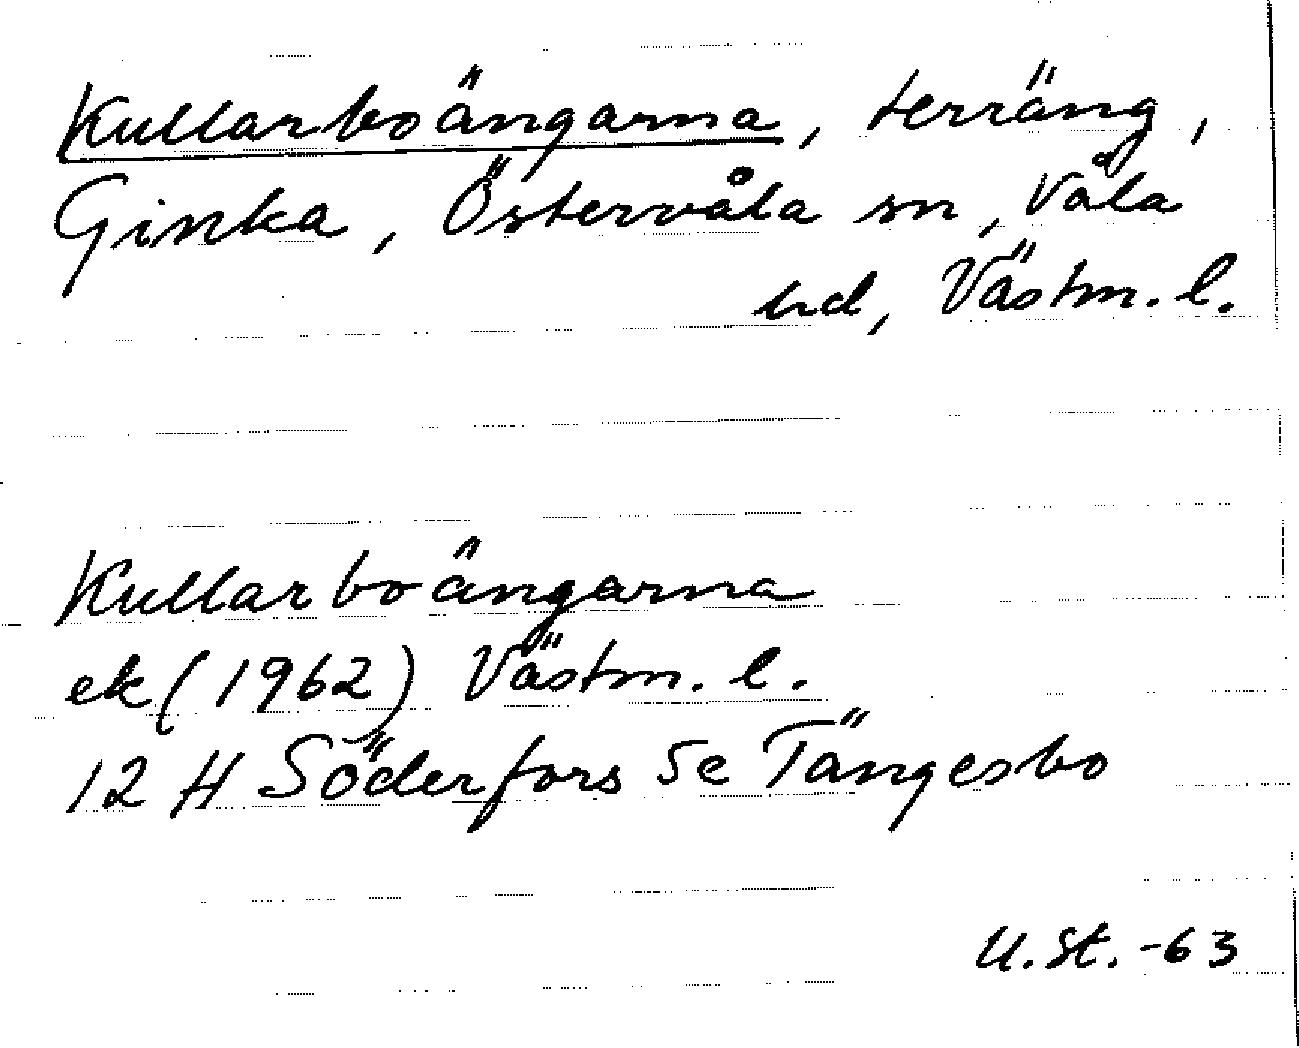 Kullarboängarna, terräng,
Ginka, Östervåla sn, Våla
hd, Västm. l.
Kullarboängarna
ek (1962) Västm. l.
12 H Söderfors 5e Tängesbo
U.St. -63